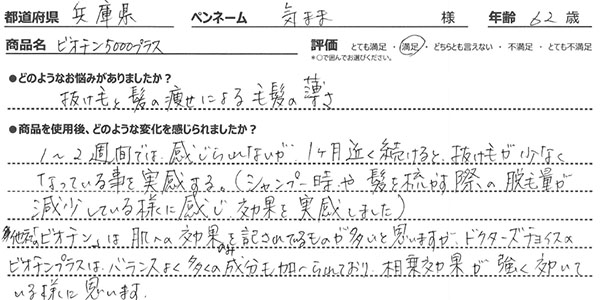 都道府県 兵庫県 ペンネーム 気まま 様 年齢 62 歳
商品名 ビオチン5000プラス 評価 とても満足 ・ 満足 ・ どちらとも言えない ・ 不満足 ・ とても不満足
*○で囲んでお選びください。
●どのようなお悩みがありましたか？
抜け毛と髪の痩せによる毛髪の薄さ
●商品を使用後、どのような変化を感じられましたか？
1〜2週間では感じられないが、1ヶ月近く続けると、抜け毛が少なく
なっている事を実感する。(シャンプー時や髪を梳かす際への脱毛量が
減少している様に感じ効果を実感しました)
他社「ビオチン」は肌への効果のみ記されているものが多いと思いますが、ドクターズチョイスの
ビオチンプラスは、バランスよく多くの成分も加へられており、相乗効果が強く効いて
いる様に思います.